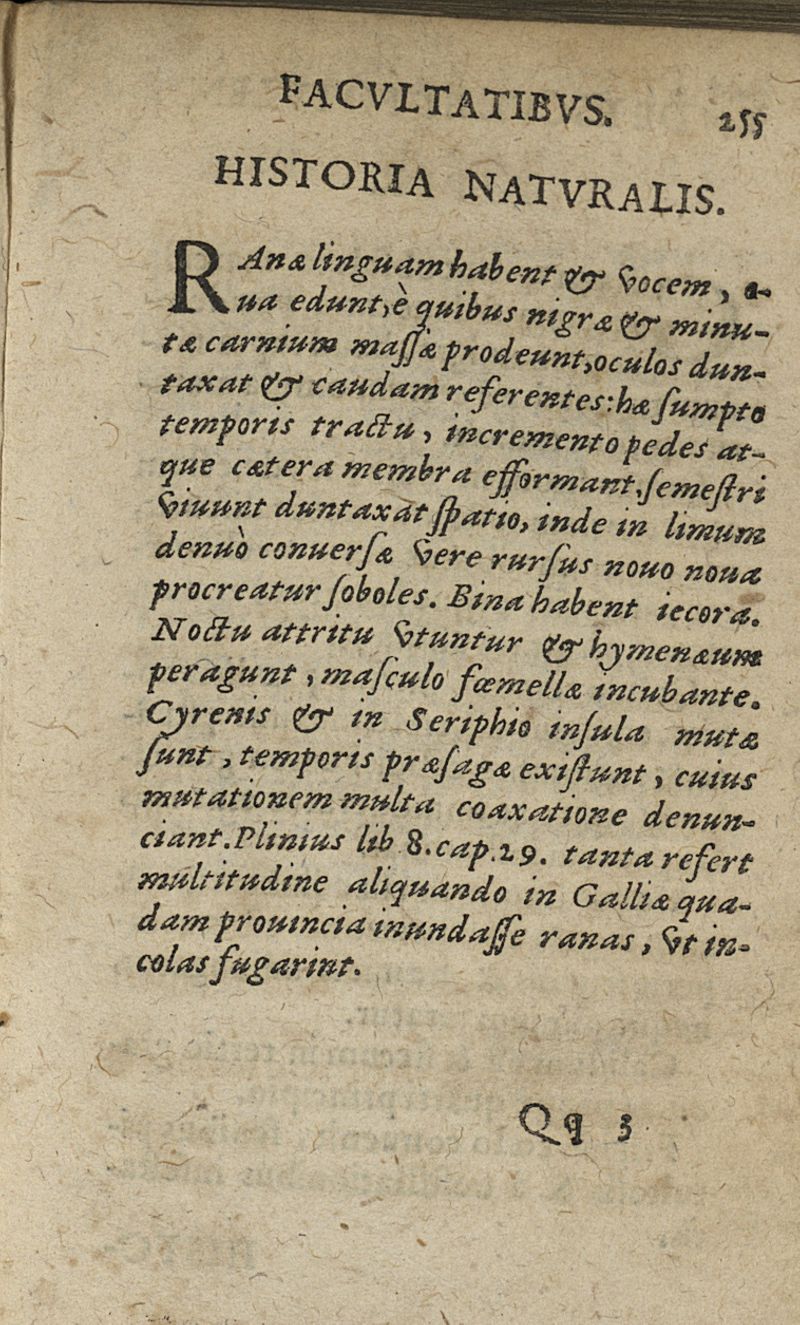 FACVLTATIBVS. 255
HISTORIA NATVRALIS.
RAnæ linguam habent & vocem, o-
ua edunt, è quibus nigræ & minu-
tæ carnium maſſæ prodeunt, oculos dun-
taxat & caudam referentes: hæ ſumpto
temporis tractu, incremento pedes at-
que cætera membra efformant, ſemeſtri
viuunt duntaxat ſpatio, inde in limum
denuò conuerſæ vere rurſus nouo noua
procreatur ſoboles. Bina habent iecora.
Noctu attritu vtuntur & hymenæum
peragunt, maſculo fœmellæ incubante.
Cyrenis & in Seriphio inſula mutæ
ſunt, temporis præſagæ exiſtunt, cuius
mutationem multa coaxatione denun-
ciant. Plinius lib 8. cap. 29. tanta refert
multitudine aliquando in Galliæ qua-
dam prouincia inundaſſe ranas, vt in-
colas fugarint.
Qq 3